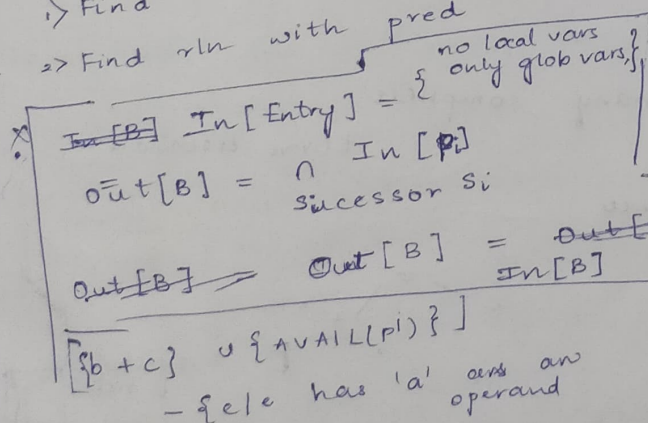 1.> Find
2.> Find rln with pred
no local vars
In[B] In[Entry] = { only glob vars,}
Out[B] = ∩ In[Pi]
Sucessor Si
Out[B] = Out[B] = Out[
In[B]
[{b + c} ∪ {AVAIL(Pi)}]
- {e/e has 'a' as an
operand